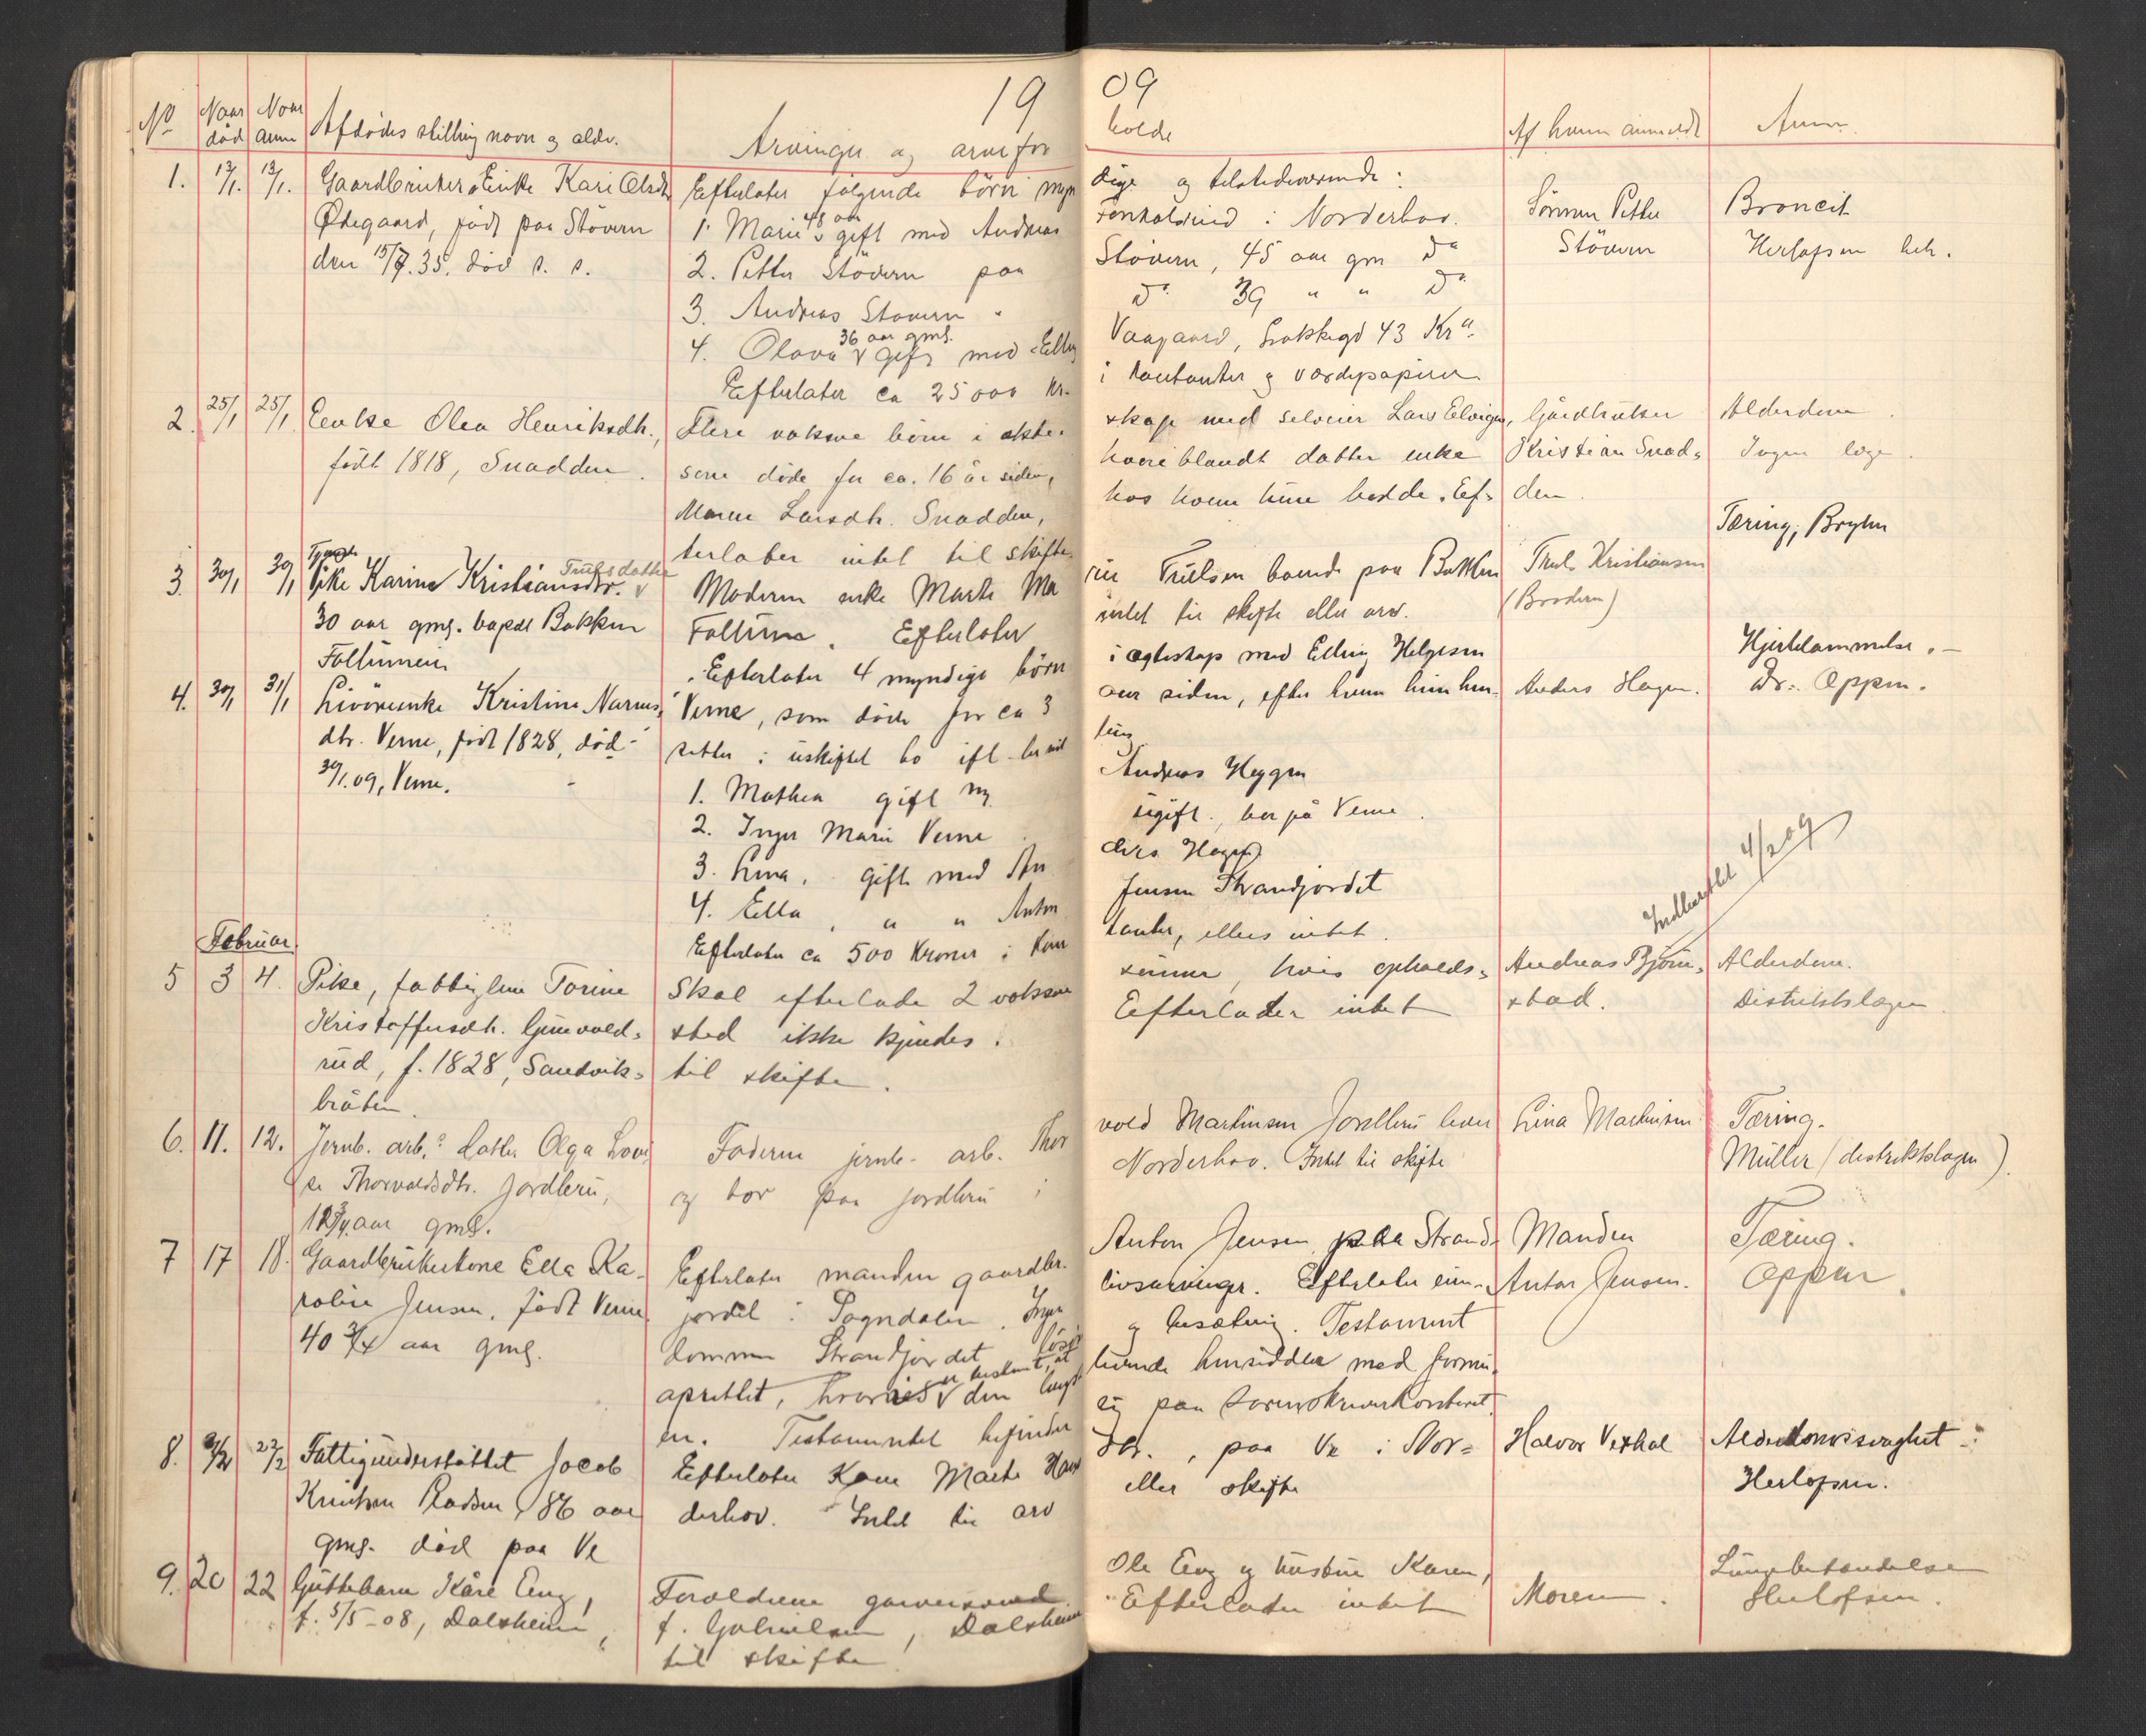 19 09
No
Naar død
Naar anm
Afdødes stilling navn og alder.
Arvinger og arvefor holde
Af hvem anmeldt
Anm.
1. 13/1. 13/1. Gaardbruker Enke Kari Olsdt
Ødegaard, født paa Støvern
den 15/7.35. død s. s.
Efterlater følgende börn myn dige og tilstedeværende:
1. Marie 48 aar gift med Andreas Fenkolsrud i Norderhov.
2. Petter Støvern paa Støvern, 45 aar gm do
3. Andreas Støvern " do 39 " " do
4. Olava 36 aar gml. gift med Elling Vaagaard, Grokkegd 43 Kra.
Efterlater ca 25000 kr. i kontanter og værdipapirer
Sönnen Petter
Støvern
Broncit
Herlofsen beh.
2. 25/1 25/1 Enke Olea Henriksdtr.,
född 1818, Snadden.
Flere voksne börn i ekte- skap med selveier Lars Elvigen,
som döde for ca. 16 år siden, hvoriblandt datter enke
Maren Larsdtr. Snadden, hos hvem hun bodde. Ef-
terlater intet til skifte.
Gårdbruker
Kristian Snad-
den.
Alderdom.
Ingen læge.
3. 30/1 30/1 Tjenende
Pike Karine Kristiansdtr. Trulsdatter
30 aar gml. bopæl Bakken
Follumeie
Moderen enke Marte Ma rie Trulsen boende paa Bakken
Follum. Efterlater intet til skifte eller arv.
Truls Kristiansen
(Broderen)
Tæring, Bryhn
4. 30/1 31/1 Livöreenke Kristine Narves-
dtr. Verne, född 1828, död
30/1.09, Verne.
Efterlater 4 myndige börn i ægteskap med Elling Helgesen
Verne, som døde for ca 3 aar siden, efter hvem hun hen-
setter i uskiftet bo ifl. bevil ling
1. Mathea gift m. Andreas Heggen
2. Inger Marie Verne ugift, bor på Verne.
3. Lina, gift med An ders Hagen
4. Ella, " " Anton Jensen Strandjordet
Efterlater ca 500 kroner i kon tanter, ellers intet.
Anders Hagen.
Hjertelammelse.
Dr. Oppen.
Indberettet 4/2 09
Februar
5 3 4. Pike, fattiglem Torine
Kristoffersdt. Gunvald-
rud, f. 1828, Sandvik-
bråten.
Skal efterlade 2 voksne sönner, hvis opholds-
sted ikke kjendes. Efterlader intet
til skifte.
Andreas Björn-
stad.
Alderdom.
Distriktslægen
6. 11. 12. Jernb. arb.s datter Olga Lovi
se Thorvaldsdtr. Jordbru,
12 3/4 aar gml.
Faderen jernb. arb. Thor vold Martinsen Jordbru lever
og bor paa Jordbru i Norderhov. Intet til skifte
Lina Martinsen
Tæring.
Müller (distriktslægen).
7 17 18. Gaardbrukerkone Ella Ka-
roline Jensen, född Verne
40 3/4 aar gml.
Efterlater manden gaardbr. Anton Jensen paa Strand-
jordet i Sogndalen. Ingen livsarvinger. Efterlater eien-
dommen Strandjordet løsöre og besætning. Testament
oprettet, hvorved er bestemt, at den lengst levende hensidder med formu-
en. Testamentet befinder sig paa sorenskriverkontoret.
Manden
Anton Jensen.
Tæring.
Oppen.
8. 21/2 22/2 Fattigunderstøttet Jacob
Knutsen Rodsen, 86 aar
gml. död paa Ve
Efterlater Kone Marte Hans dtr., paa Ve i Nor-
derhov. Intet til arv eller skifte
Halvor Vexhal
Alderdomssvaghet.
Herlofsen.
9. 20 22 Guttebarn Kåre Eng,
f. 5/5-08, Dalsheim,
Forældrene garversvend Ole Eng og hustru Karen,
f. Gabrielsen, Dalsheim. Efterlader intet
til skifte
Moren.
Lungebetændelse
Herlofsen.